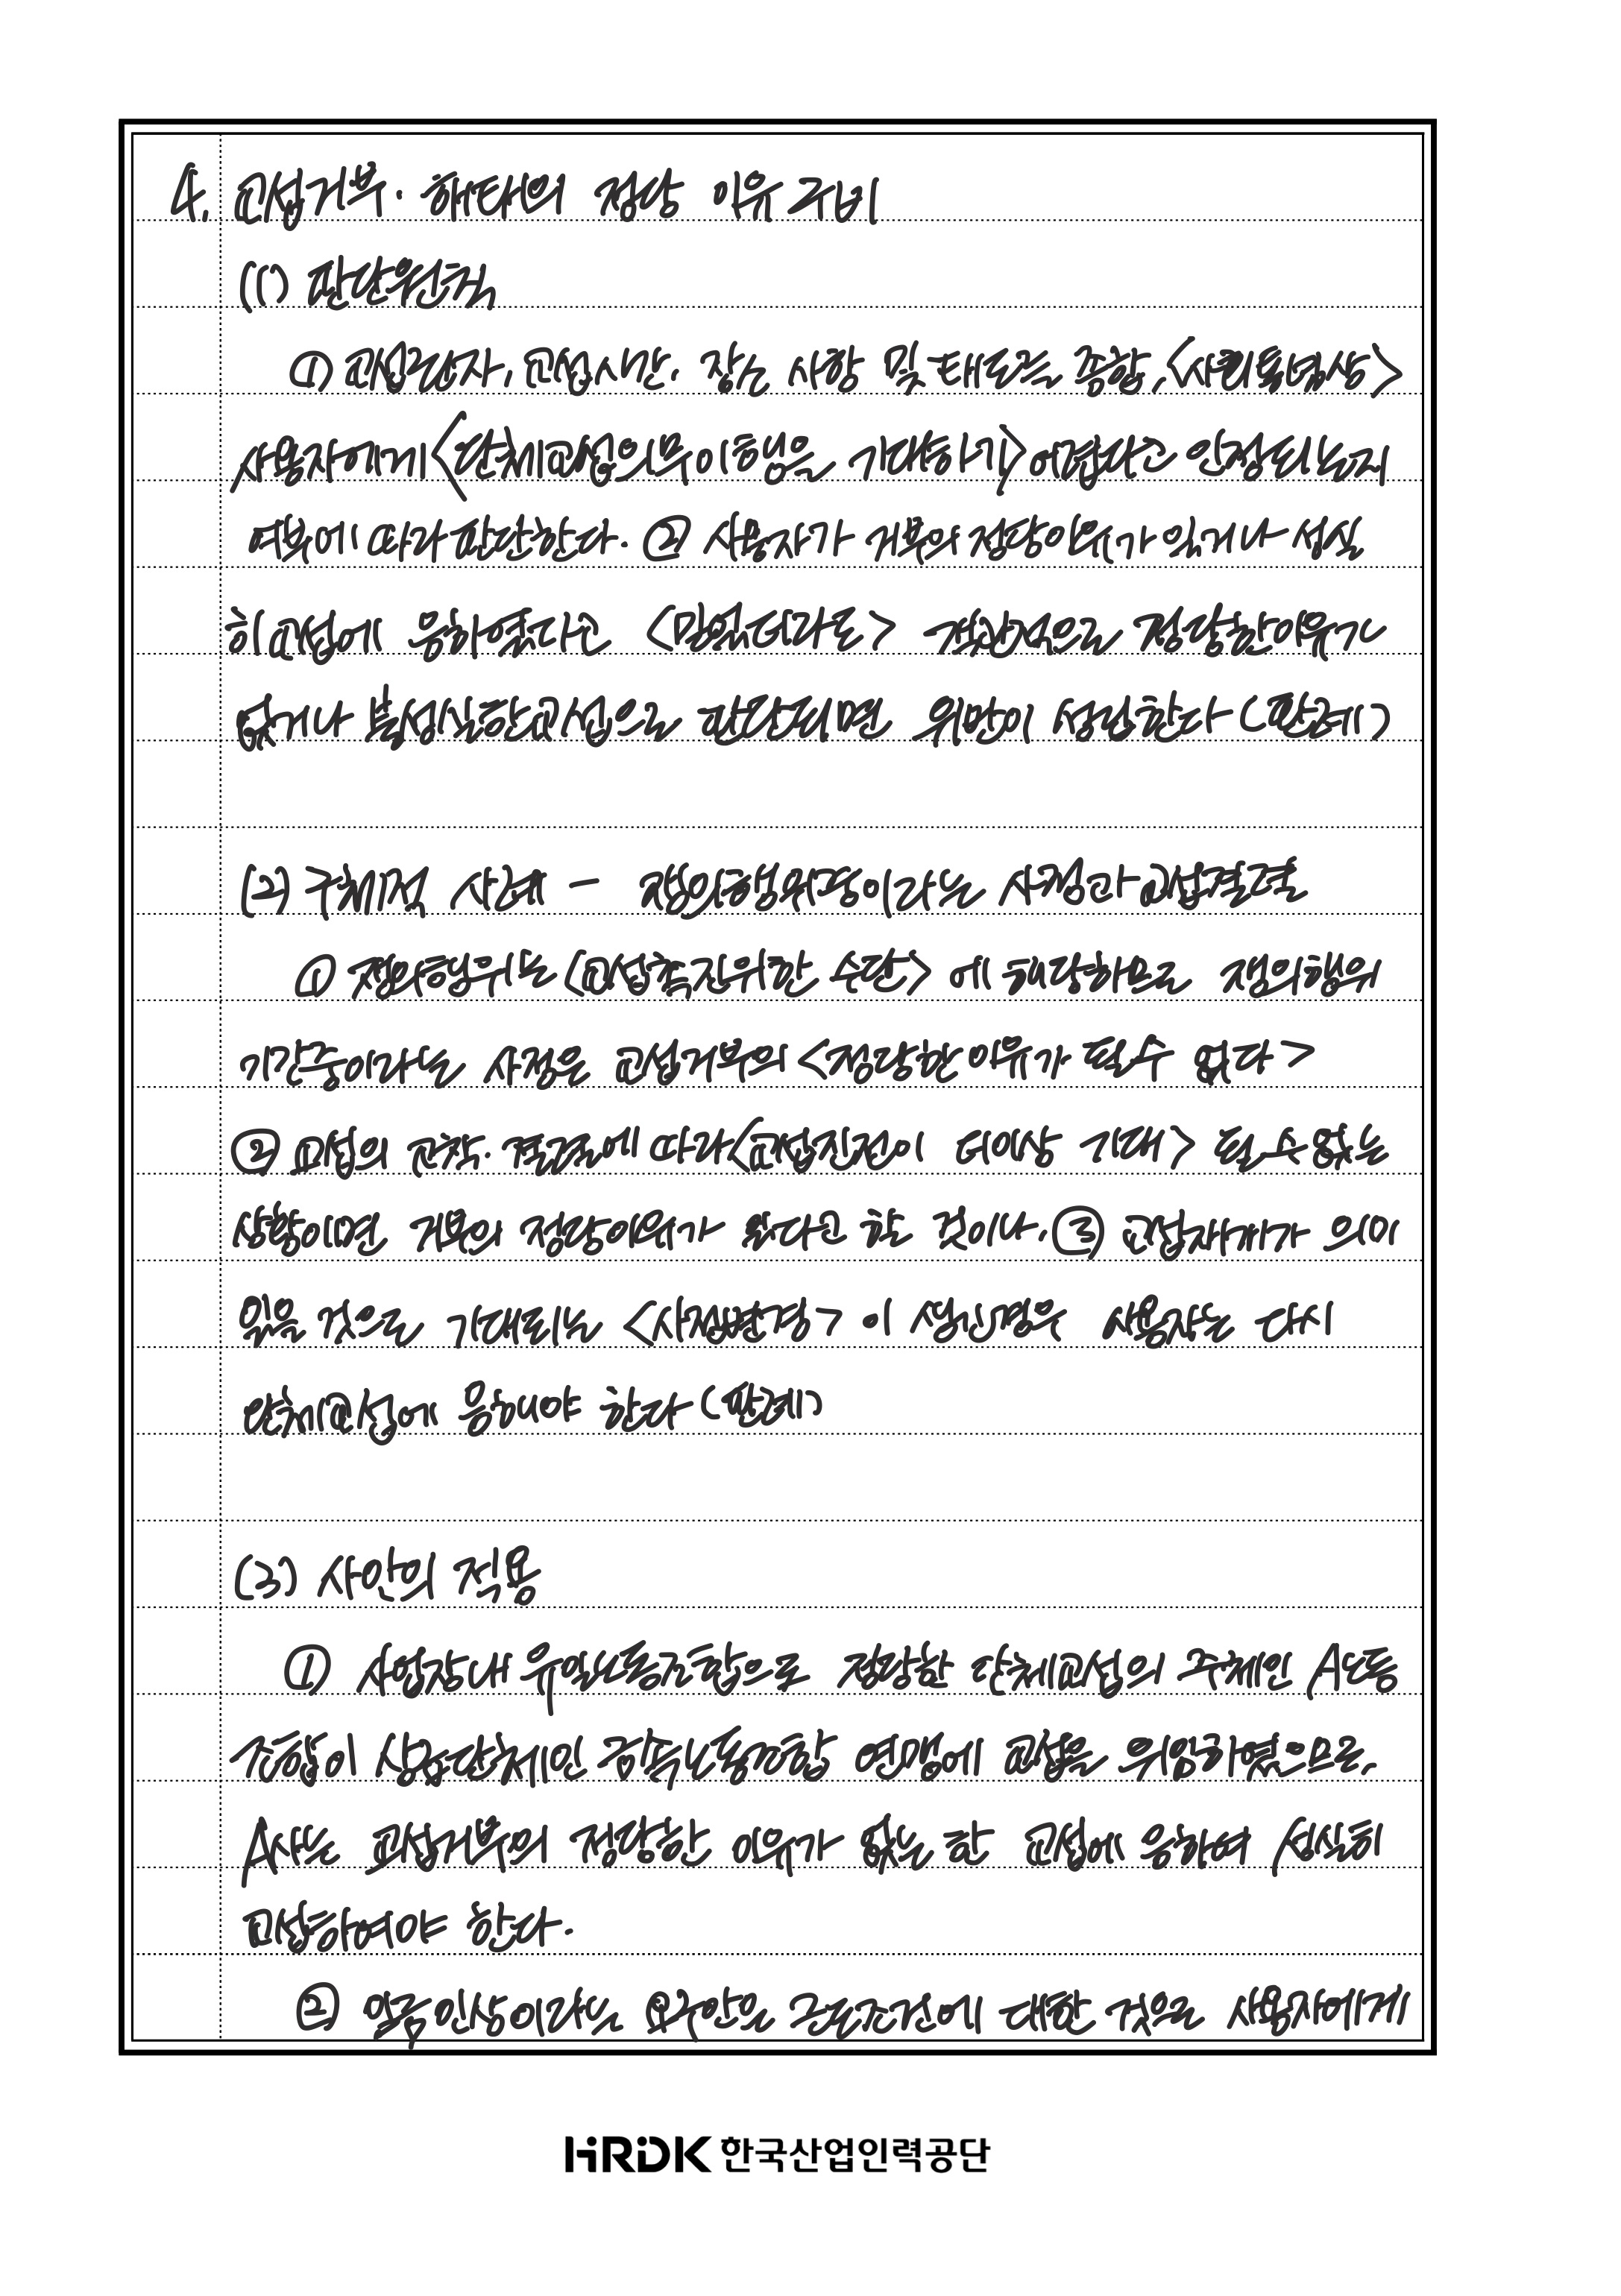 4. 교섭거부·해태의 정당 이유 구비
(1) 판단원칙
① 교섭권자, 교섭시간, 장소 사항 및 태도를 종합, <사회통념상>
사용자에게 <단체교섭의무이행을 기대하기> 어렵다고 인정되는지
여부에 따라 판단한다. ② 사용자가 거부의 정당이유가 있거나 성실
히 교섭에 응하였다고 <믿었더라도> 객관적으로 정당한 이유가
없거나 불성실한 교섭으로 판단되면 위반이 성립한다 (판례)
(2) 구체적 사례 - 쟁의행위중이라는 사정과 교섭결렬
① 쟁의행위는 <교섭촉진위한 수단> 에 해당하므로 쟁의행위
기간중이라는 사정은 교섭거부의 <정당한 이유가 될 수 없다>
② 교섭의 교착·결렬에 따라 <교섭진전이 더이상 기대> 될 수 없는
상황이면 거부의 정당이유가 있다고 할 것이나, ③ 교섭재개가 의미
있을 것으로 기대되는 <사정변경> 이 생긴 경우 사용자는 다시
단체교섭에 응해야 한다 (판례)
(3) 사안의 적용
① 사업장내 유일노동조합으로 정당한 단체교섭의 주체인 A노동
조합이 상급단체인 금속노동조합 연맹에 교섭을 위임하였으므로,
A사는 교섭거부의 정당한 이유가 없는 한 교섭에 응하여 성실히
교섭하여야 한다.
② 임금인상이라는 요구안은 근로조건에 대한 것으로 사용자에게
HRDK 한국산업인력공단